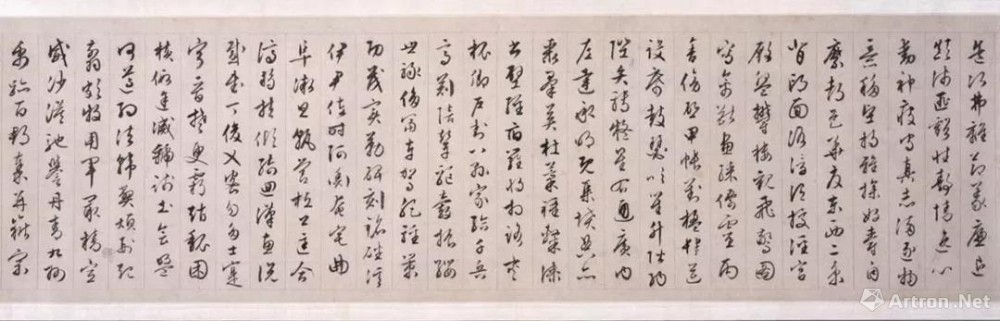 造次弗離節義廉退
顛沛匪虧性靜情逸心
動神疲守真志滿逐物
意移堅持雅操好爵自
縻都邑華夏東西二京
背邙面洛浮渭據涇宮
殿盤鬱樓觀飛驚圖
寫禽獸畫綵仙靈丙
舍傍啓甲帳對楹肆筵
設席鼓瑟吹笙升階納
陛弁轉疑星右通廣內
左達承明既集墳典亦
聚群英杜稾鍾隸漆
書壁經府羅將相路俠
槐卿戶封八縣家給千兵
高冠陪輦驅轂振纓
世祿侈富車駕肥輕策
功茂實勒碑刻銘磻溪
伊尹佐時阿衡奄宅曲
阜微旦孰營桓公匡合
濟弱扶傾綺回漢惠說
感武丁俊乂密勿多士寔
寧晉楚更霸趙魏困
橫假途滅虢踐土會盟
何遵約法韓弊煩刑起
翦頗牧用軍最精宣
威沙漠馳譽丹青九州
禹跡百郡秦并嶽宗
Artron.Net